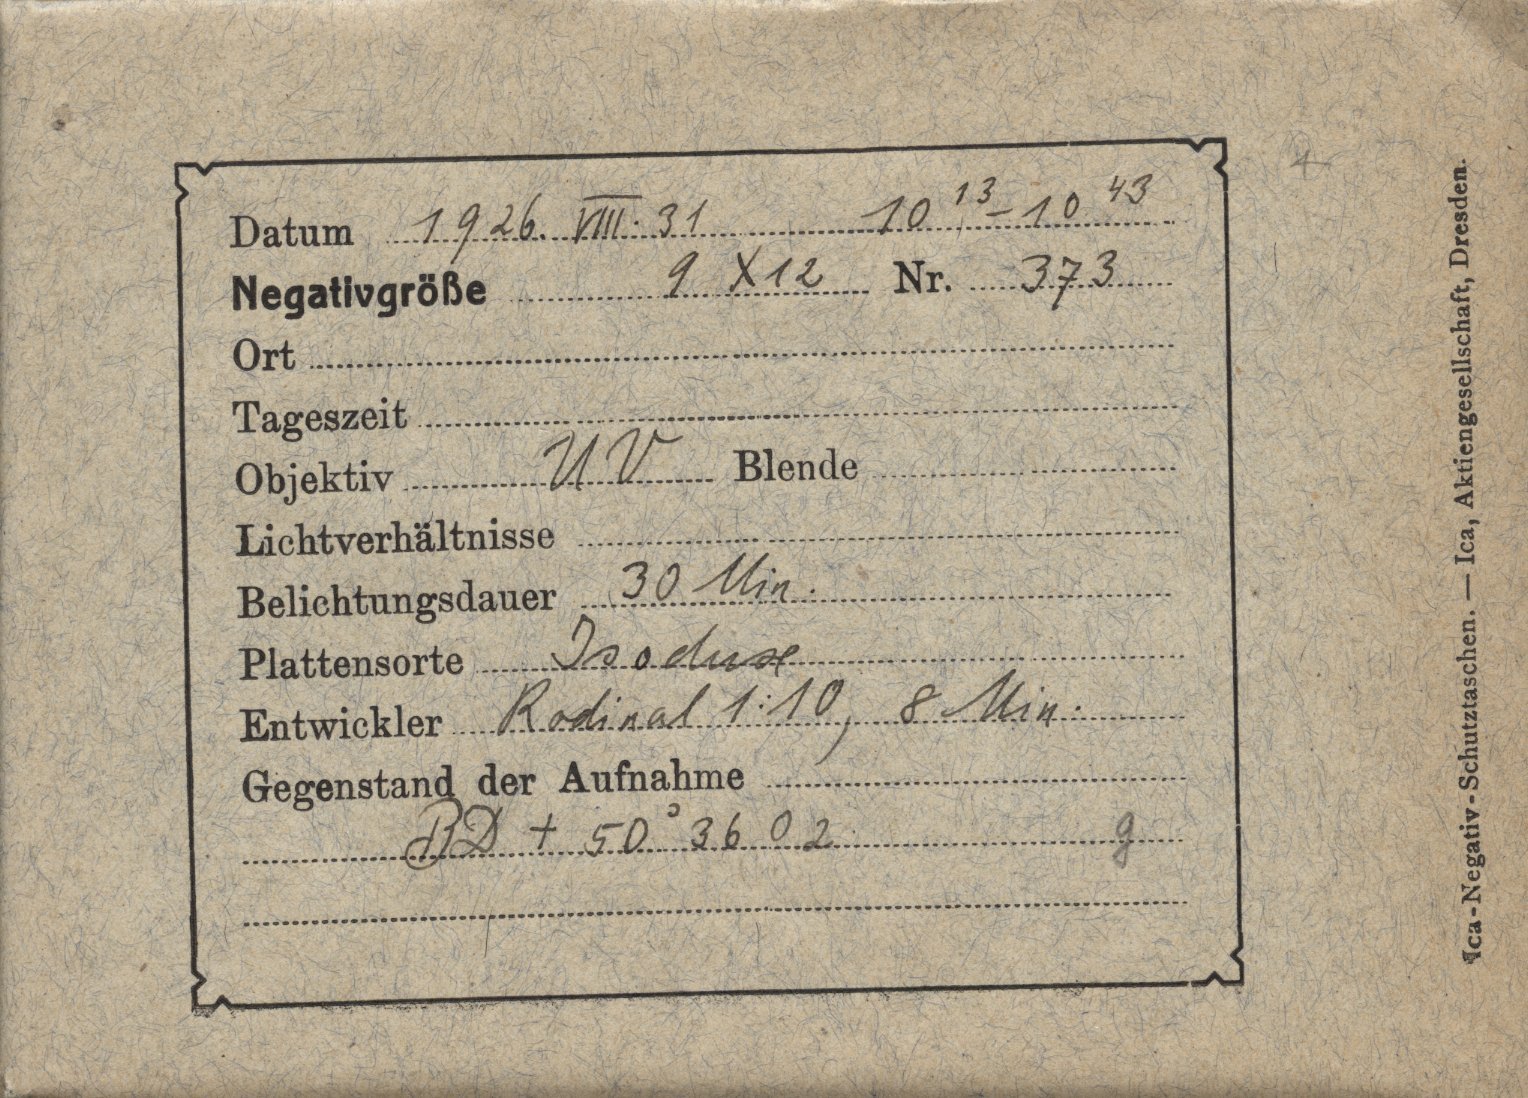 Datum 1926. VIII. 31 10 13 - 10 43
Negativgröße 9 X 12 Nr. 373
Ort
Tageszeit
Objektiv UV Blende
Lichtverhältnisse
Belichtungsdauer 30 Min.
Plattensorte Isodux
Entwickler Rodinal 1:10, 8 Min.
Gegenstand der Aufnahme
BD + 50° 3602 g
Ica-Negativ-Schutztaschen. — Ica, Aktiengesellschaft, Dresden.